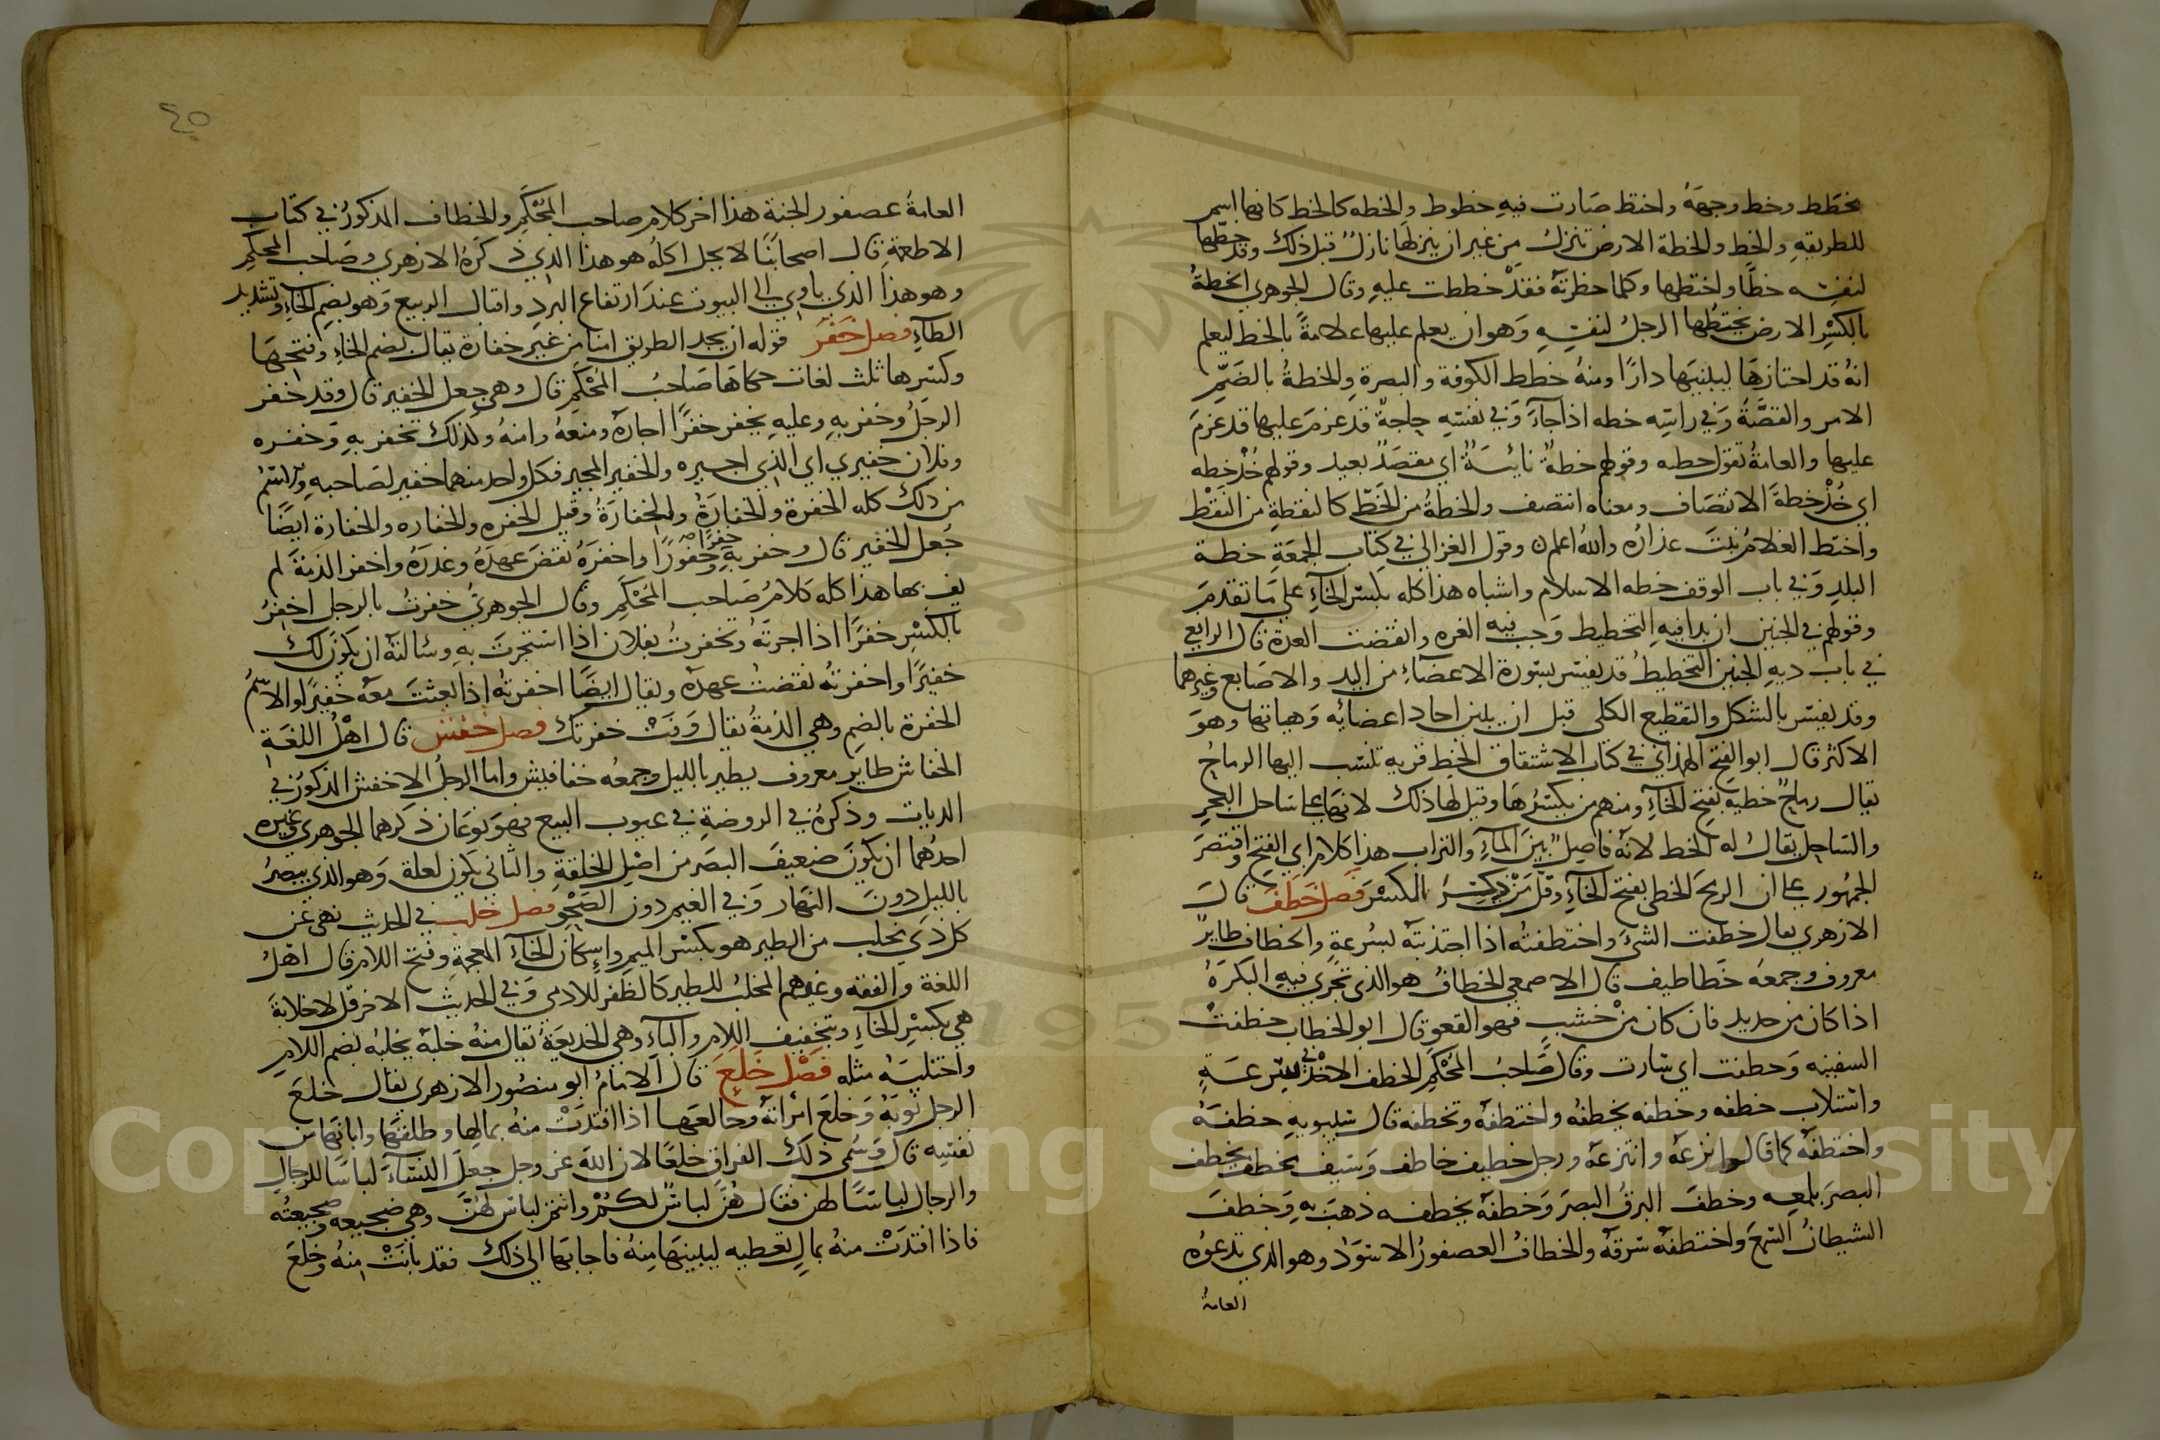 مخطط وخط وجهه واختط صارت فيه خطوط والخطه كالخط كانها اسم
للطريقه والخط والخطة الارض تنزل من غير ان ينزلها نازل قبل ذلك وقد خطها
لنفسه خطا واختطها وكلما حظرته فقد خططت عليه وقال الجوهري الخطة
بالكسر الارض يختطها الرجل لنفسه وهو ان يعلم عليها علامة بالخط ليعلم
انه قد احتازها ليبنيها دارا ومنه خطط الكوفة والبصرة والخطة بالضم
الامر والقصة وفي راسه خطه اذا جاء وفي نفسه حاجة قد عزم عليها قد عزم
عليها والعامة تقول خطبه وقولهم خطة نائية اي مقصد بعيد وقولهم خذ خطه
اي خذ خطة الانتصاف ومعناه انتصف والخطة من الخط كالنقطة من النقط
واختط الغلام نبت عذاره والله اعلم وقول الغزالي في كتاب الجمعة خطة
البلد وفي باب الوقف خطه الاسلام واشباه هذا كله بكسر الخاء على ما تقدم
وقولهم في الجنين ان بدا فيه التخطيط وجب فيه الغره وانقضت العدة قال الرافعي
في باب دية الجنين التخطيط قد يفسر بسورة الاعضاء من اليد والاصابع وغيرهما
وقد يفسر بالشكل والتقطيع الكلي قبل ان يلين احاد اعضائه وهياتها وهو
الاكثر قال ابو الفتح الهمذاني في كتاب الاشتقاق الخط قريه تنسب اليها الرماح
يقال رماح خطية بفتح الخاء ومنهم من يكسرها وقيل لها ذلك لانها على ساحل البحر
والساحل يقال له الخط لانه فاصل بين الماء والتراب هذا كلام ابي الفتح واقتصر
الجمهور على ان الريح الخطي بفتح الخاء وقل من ذكر الكسر فصل خطف قال
الازهري يقال خطفت الشي واختطفته اذا اجتذبته بسرعة والخطاف طاير
معروف وجمعه خطاطيف قال الاصمعي الخطاف هو الذي تجري فيه البكرة
اذا كان من حديد فان كان من خشب فهو القعو قال ابو الخطاب خطفت
السفينه وخطفت اي سارت وقال صاحب المحكم الخطف الاخذ في سرعة
واستلاب خطفه وخطفه يخطفه واختطفه وتخطفه قال سيبويه خطفه
واختطفه كما قالوا نزعه وانتزعه ورجل خطيف خاطف وسيف يخطف يخطف
البصر بلمعه وخطف البرق البصر وخطفه يخطفه ذهب به وخطف
الشيطان السمع واختطفه سرقه والخطاف العصفور الاسود وهو الذي تدعوه
العامة
٤٥
العامة عصفور الجنة هذا اخر كلام صاحب المحكم والخطاف المذكور في كتاب
الاطعمة قال اصحابنا لا يحل اكله هو هذا الذي ذكره الازهري وصاحب المحكم
وهو هذا الذي ياوي الى البيوت عند ارتفاع البرد واقبال الربيع وهو بضم الخاء وتشديد
الطاء فصل خفر قوله ان يجد الطريق امنا من غير خفارة يقال بضم الخاء وفتحها
وكسرها ثلث لغات حكاها صاحب المحكم قال وهي جعل الخفير قال وقد خفر
الرجل وخفر به وعليه يخفر خفرا اجاره ومنعه وامنه وكذلك تخفر به وخفره
وفلان خفيري اي الذي اجيره والخفير المجير فكل واحد منهما خفير لصاحبه والاسم
من ذلك كله الخفرة والخفارة والخفارة وقيل الخفره والخفاره والخفارة ايضا
جعل الخفير قال وخفر به خفرا وخفورا واخفره نقض عهده وغدره واخفر الذمة لم
يف بها هذا كله كلام صاحب المحكم وقال الجوهري خفرت بالرجل اخفر
بالكسر خفرا اذا اجرته وتخفرت بفلان اذا استجرت به وسالته ان يكون لك
خفيرا واخفرته نقضت عهده ويقال ايضا اخفرته اذا بعثت معه خفيرا والاسم
الخفرة بالضم وهي الذمة يقال وفت خفرتك فصل خفش قال اهل اللغة
الخفاش طاير معروف يطير بالليل وجمعه خفافيش واما الرجل الاخفش المذكور في
الديات وذكره في الروضة في عيوب البيع فهو نوعان ذكرهما الجوهري وغيره
احدهما ان يكون ضعيف البصر من اصل الخلقة والثاني يكون لعلة وهو الذي يبصر
بالليل دون النهار وفي الغيم دون الصحو فصل خلب في الحديث نهى عن
كل ذي مخلب من الطير هو بكسر الميم واسكان الخاء المعجمة وفتح اللام قال اهل
اللغة والفقه وغيرهم المخلب للطير كالظفر للادمي وفي الحديث الاخر قل لا خلابة
هي بكسر الخاء وتخفيف اللام والباء وهي الخديعة يقال منه خلبه يخلبه بضم اللام
واختلبه مثله فصل خلع قال الامام ابو منصور الازهري يقال خلع
الرجل ثوبه وخلع امراته وخالعها اذا افتدت منه بمالها وطلقها وابانها من
نفسه قال وسمي ذلك الفراق خلعا لان الله عز وجل جعل النساء لباسا للرجال
والرجال لباسا لهن فقال هن لباس لكم وانتم لباس لهن وهي ضجيعه وضجيعته
فاذا افتدت منه بمال تعطيه ليبينها منه فاجابها الى ذلك فقد بانت منه وخلع
Copyright © King Saud University
1957